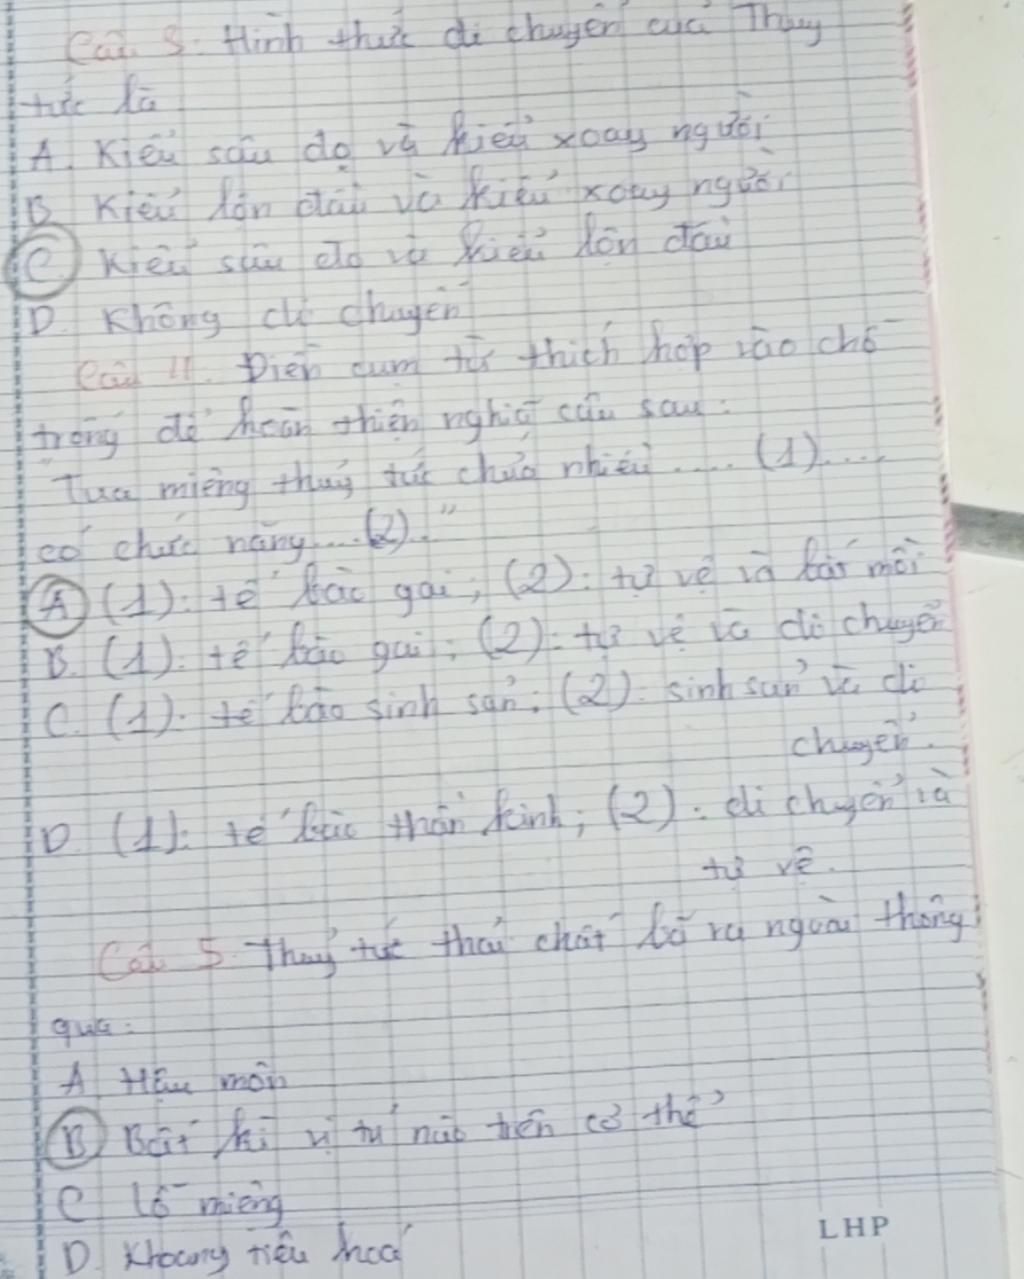 Câu 3. Hình thức di chuyển của Thủy
tức là
A. Kiểu sâu đo và kiểu xoay người
B. Kiểu lộn đầu và kiểu xoay người
C. Kiểu sâu đo và kiểu lộn đầu
D. Không di chuyển
Câu 4. Điền cụm từ thích hợp vào chỗ
trống để hoàn thiện nghĩa câu sau:
"Tua miệng thuỷ tức chứa nhiều .... (1)....
có chức năng ...(2)."
A (1): tế bào gai; (2): tự vệ và bắt mồi
B. (1): tế bào gai; (2): tự vệ và di chuyển
C. (1): tế bào sinh sản; (2): sinh sản và di
chuyển.
D. (1): tế bào thần kinh; (2): di chuyển và
tự vệ.
Câu 5. Thuỷ tức thải chất bã ra ngoài thông
qua:
A Hậu môn
B Bất kì vị trí nào trên cơ thể
C Lỗ miệng
D. Khoang tiêu hoá
LHP